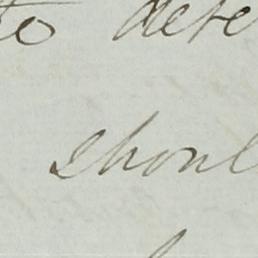 to dete
shoul